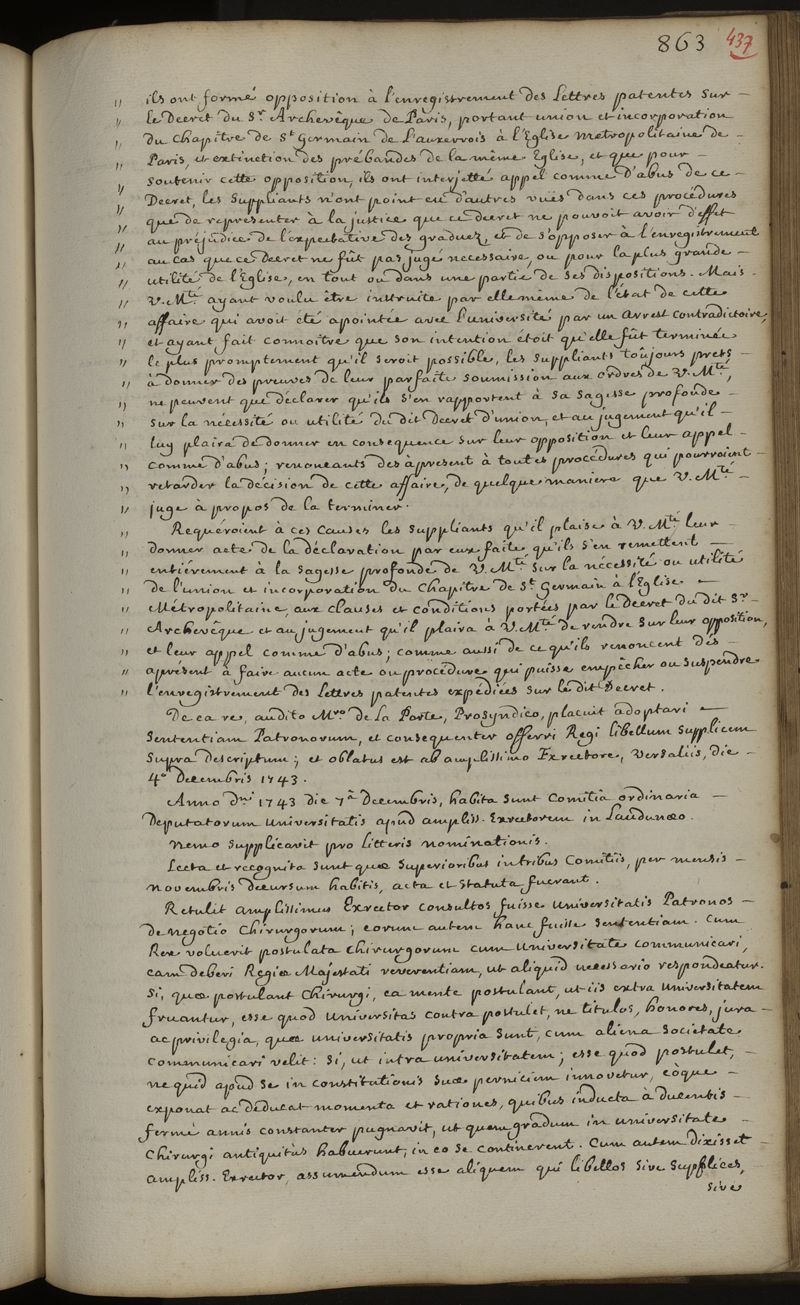 863 437
" ils ont formé opposition à l'enregistrement des Lettres patentes sur –
" le Decret du Sr. Archevêque de Paris, portant union et incorporation
" du Chapitre de St Germain de L'auxerrois à l'Eglise metropolitaine de –
" Paris, et extinction des prébandes de la même Eglise, et que pour –
" soutenir cette opposition, ils ont interjetté appel comme d'abus de ce –
" Decret, les suppliants n'ont point eu d'autres vuës dans ces procédures
" que de representer à la justice que ce decret ne pouvoit avoir d'effet
" au préjudice de l'expectative des graduez, et de s'opposer à l'enregistrement
" au cas que ce decret ne fût pas jugé necessaire, ou pour la plus grande –
" utilité de l'Eglise, en tout ou dans une partie de ses dispositions. Mais –
" V. Mté. ayant voulu être instruite par elle même de l'état de cette
" affaire qui avoit été apointée avec l'université par un arrest contradictoire,
" et ayant fait connoître que son intention étoit qu'elle fût terminée
" le plus promptement qu'il seroit possible, les suppliants toujours prets –
" à donner des preuves de leur parfaite soumission aux ordres de V. Mté,
" ne peuvent que déclarer qu'ils s'en rapportent à sa sagesse profonde –
" sur la nécessité ou utilité du dit Decret d'union, et au jugement qu'il –
" luy plaira de donner en consequence sur leur opposition et leur appel –
" comme d'abus; renonceants des àpresent à toutes procédures qui pourroient –
" retarder la décision de cette affaire, de quelque maniere que V. Mté –
" juge à propos de la terminer.
" Requéroient à ces causes les suppliants qu'il plaise à V. Mté leur –
" donner acte de la déclaration par eux faite qu'ils s'en remettent –
" entiérement à la sagesse profonde de V. Mté sur la nécessité ou utilité
" de l'union et incorporation du Chapitre de St. Germain à l'Eglise –
" Métropolitaine, aux clauses et conditions portées par le decret du dit Sr. –
" Archevêque et au jugement qu'il plaira à V. Mté de rendre sur leur opposition,
" et leur appel comme d'abus; comme aussi de ce qu'ils renoncent dès –
" aprésent à faire aucun acte ou procédure qui puisse empêcher ou suspendre
" l'enregistrement des Lettres patentes expédiées sur le dit Decret.
De ea re, audito Mro. de La Porte, Prosyndico, placuit adoptari –
sententiam Patronorum, et consequenter offerri Regi libellum supplicem
supra descriptum; et oblatus est ab amplissimo Exrectore, Versaliis, die –
4a Decembris 1743.
Anno Dni 1743 die 7a Decembris, habita sunt Comitia ordinaria –
Deputatorum universitatis apud ampliss. Exrectorem in Laudunæo.
Nemo supplicavit pro litteris nominationis.
Lecta et recognita sunt quæ superioribus in tribus Comitiis, per mensis –
novembris decursum habitis, acta et statuta fuerant.
Retulit amplissimus Exrector consultos fuisse universitatis Patronos –
de negotio Chirurgorum; eorum autem hanc fuisse sententiam. Cum
Rex voluerit postulata chirurgorum cum universitate communicari,
eam deberi Regiæ Majestati reverentiam, ut aliquid necessario respondeatur.
Si, quæ postulant Chirurgi, ea mente postulant, ut iis extra universitatem
fruantur, esse quod universitas contra postulet, ne titulos, honores, jura –
ac privilegia, quæ universitatis propria sunt, cum aliena societate
communicari velit: si, ut intra universitatem; esse quod postulet, –
ne quid apud se in constitutionis suæ perniciem innovetur, eòque –
exponat ac deducat momenta et rationes, quibus inducta à ducentis –
fermè annis constanter pugnavit, ut quem gradum in universitate –
Chirurgi antiquitùs habuerunt, in eo se continerent. Cum autem dixisset –
ampliss. Exrector, assumendum esse aliquem qui libellos sive supplices,
sive